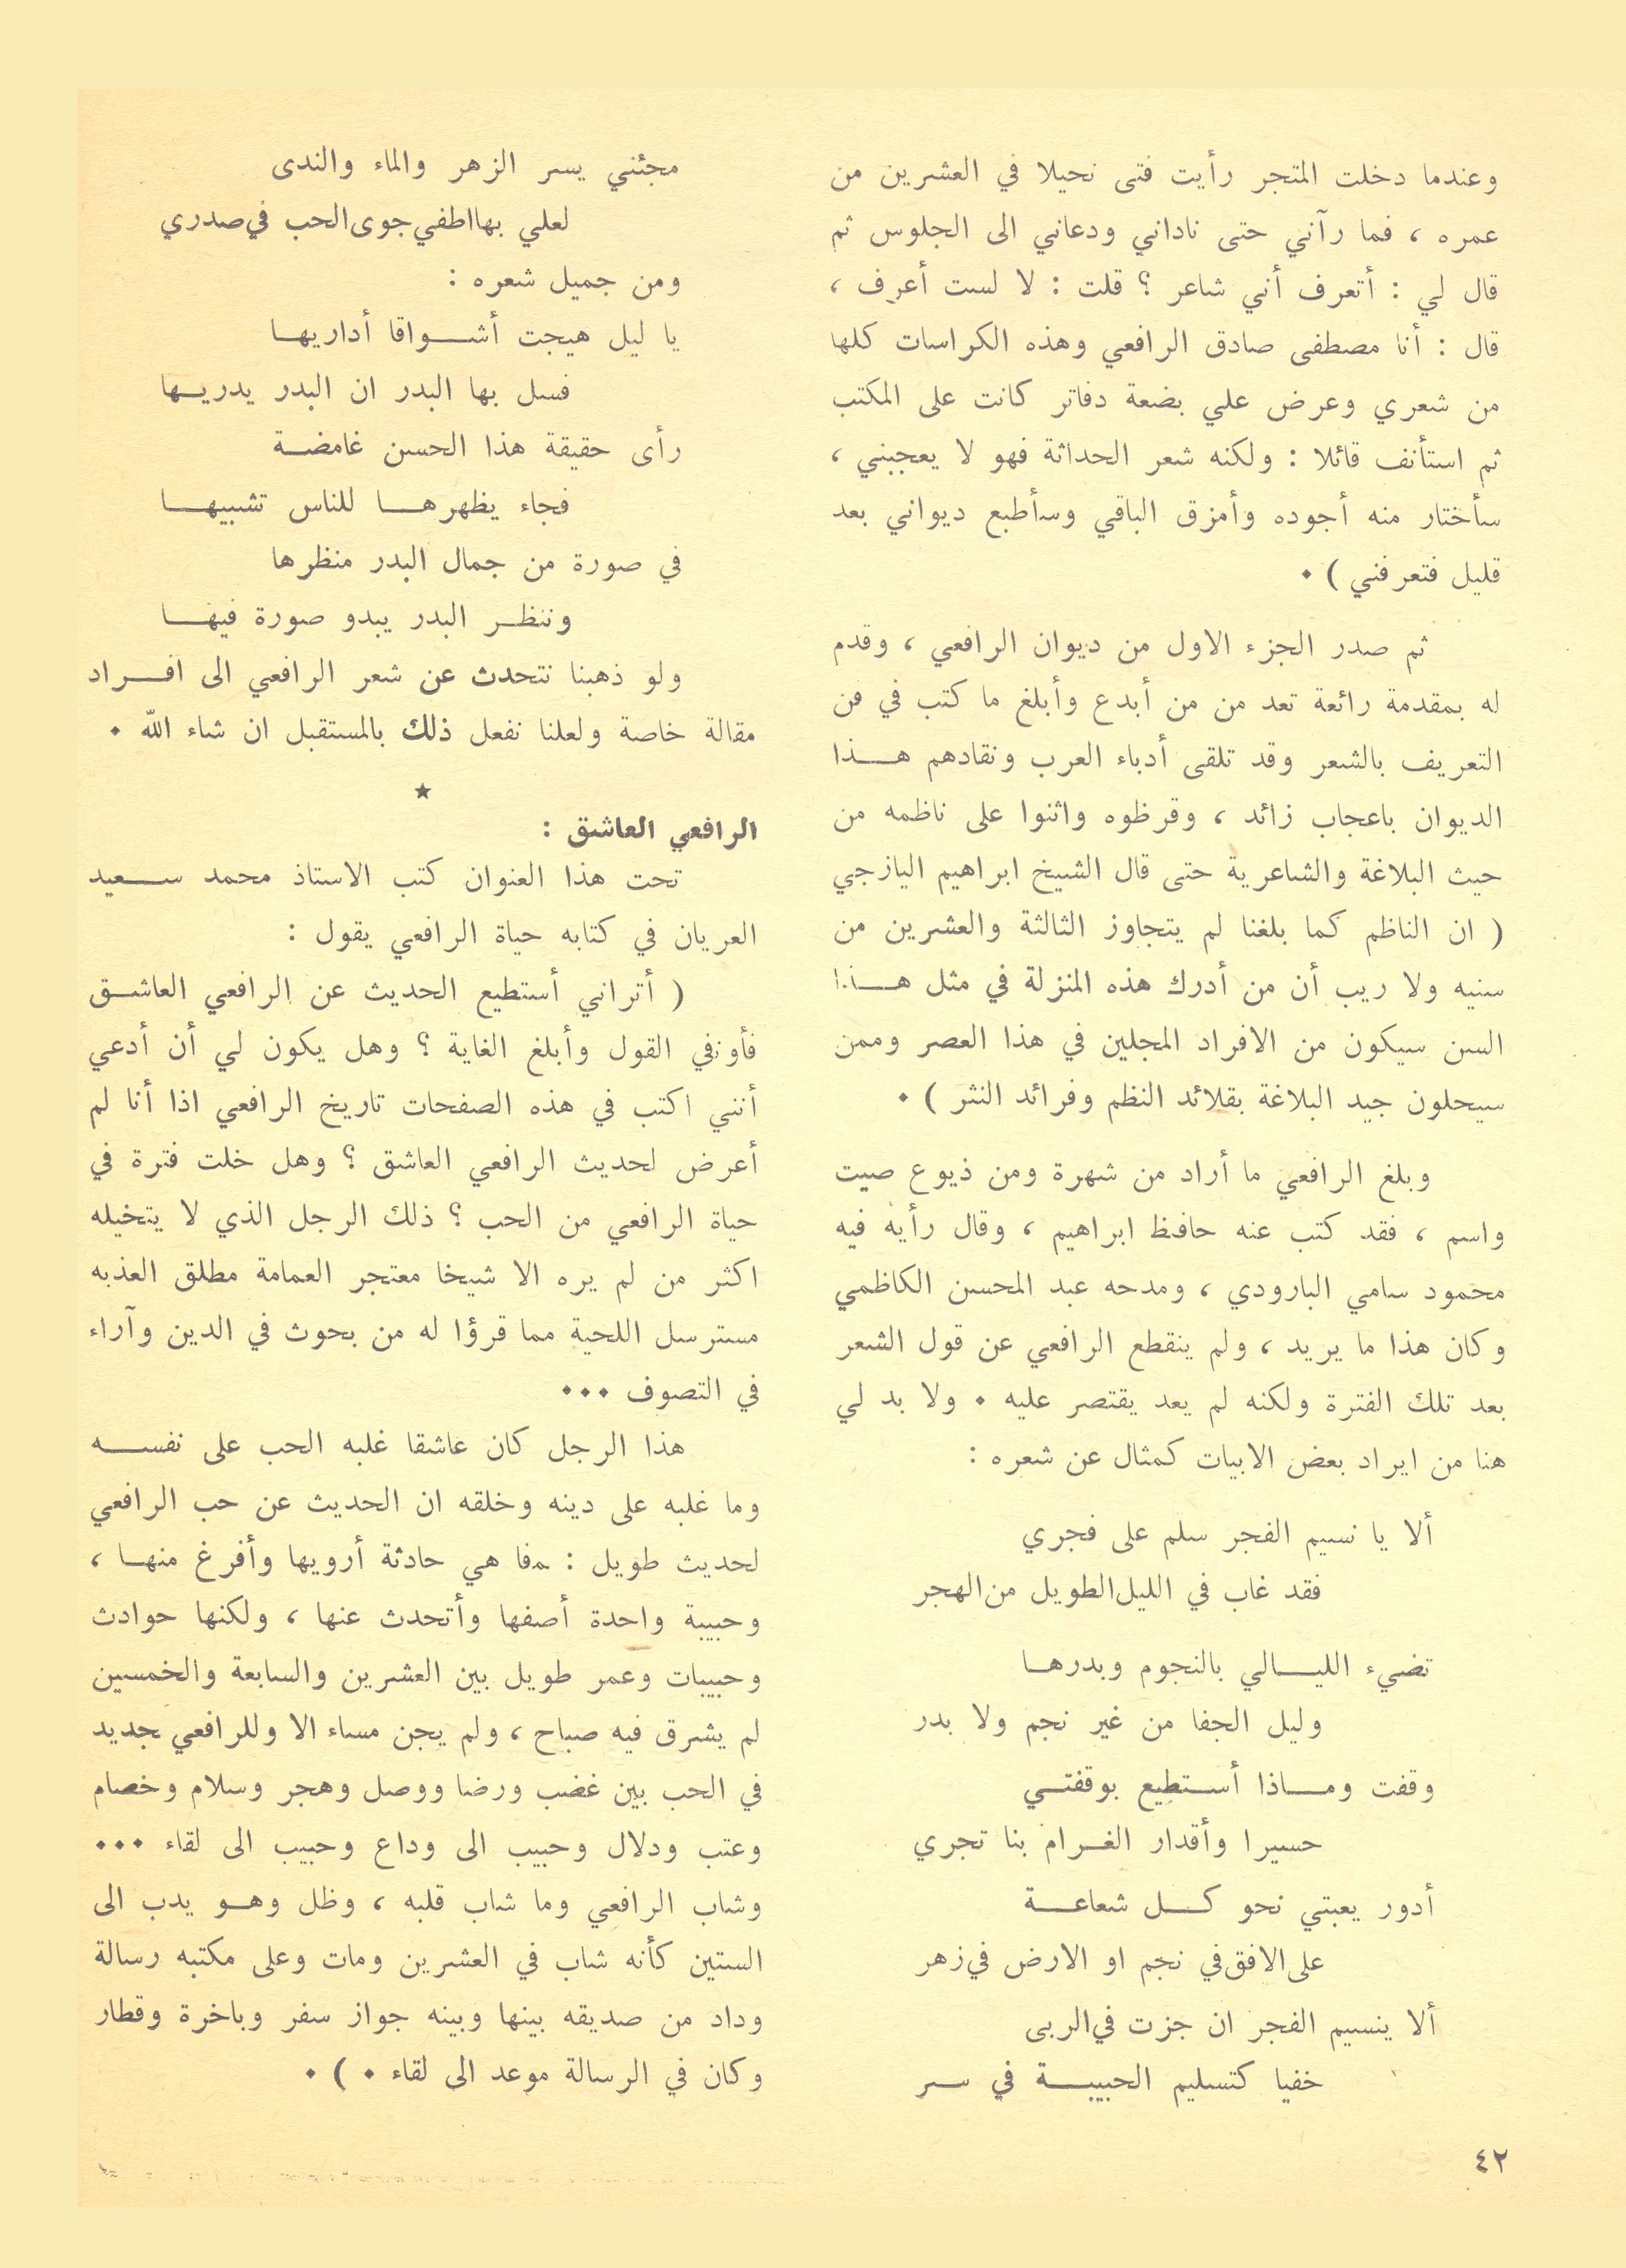 وعندما دخلت المتجر رأيت فتى نحيلا في العشرين من
عمره ، فما رآني حتى ناداني ودعاني الى الجلوس ثم
قال لي : أتعرف أني شاعر ؟ قلت : لا لست أعرف ،
قال : أنا مصطفى صادق الرافعي وهذه الكراسات كلها
من شعري وعرض علي بضعة دفاتر كانت على المكتب
ثم استأنف قائلا : ولكنه شعر الحداثة فهو لا يعجبني ،
سأختار منه أجوده وأمزق الباقي وسأطبع ديواني بعد
قليل فتعرفني ) •
ثم صدر الجزء الاول من ديوان الرافعي ، وقدم
له بمقدمة رائعة تعد من من أبدع وأبلغ ما كتب في فن
التعريف بالشعر وقد تلقى أدباء العرب ونقادهم هــذا
الديوان باعجاب زائد ، وقرظوه واثنوا على ناظمه من
حيث البلاغة والشاعرية حتى قال الشيخ ابراهيم اليازجي
( ان الناظم كما بلغنا لم يتجاوز الثالثة والعشرين من
سنيه ولا ريب أن من أدرك هذه المنزلة في مثل هــذا
السن سيكون من الافراد المجلين في هذا العصر وممن
سيحلون جيد البلاغة بقلائد النظم وفرائد النثر ) •
وبلغ الرافعي ما أراد من شهرة ومن ذيوع صيت
واسم ، فقد كتب عنه حافظ ابراهيم ، وقال رأيه فيه
محمود سامي البارودي ، ومدحه عبد المحسن الكاظمي
وكان هذا ما يريد ، ولم ينقطع الرافعي عن قول الشعر
بعد تلك الفترة ولكنه لم يعد يقتصر عليه • ولا بد لي
هنا من ايراد بعض الابيات كمثال عن شعره :
ألا يا نسيم الفجر سلم على فجري
فقد غاب في الليل الطويل من الهجر
تضيء الليــالي بالنجوم وبدرهـا
وليل الجفا من غير نجم ولا بدر
وقفت ومــاذا أســتطيع بوقفتــي
حسيرا وأقدار الغــرام بنا تجري
أدور يعبتي نحو كــل شعاعــة
على الافق في نجم او الارض في زهر
ألا ينسيم الفجر ان جزت في الربى
خفيا كتسليم الحبيبــة في ســر
مجئنني يسر الزهر والماء والندى
لعلي بها اطفي جوى الحب في صدري
ومن جميل شعره :
يا ليل هيجت أشــواقا أداريهـا
فسل بها البدر ان البدر يدريــها
رأى حقيقة هذا الحسن غامضـة
فجاء يظهرهــا للناس تشبيهــا
في صورة من جمال البدر منظرها
وننظــر البدر يبدو صورة فيهــا
ولو ذهبنا نتحدث عن شعر الرافعي الى افــراد
مقالة خاصة ولعلنا نفعل ذلك بالمستقبل ان شاء الله •
★
الرافعي العاشق :
تحت هذا العنوان كتب الاستاذ محمد ســعيد
العريان في كتابه حياة الرافعي يقول :
( أتراني أستطيع الحديث عن الرافعي العاشــق
فأوفي القول وأبلغ الغاية ؟ وهل يكون لي أن أدعي
أنني اكتب في هذه الصفحات تاريخ الرافعي اذا أنا لم
أعرض لحديث الرافعي العاشق ؟ وهل خلت فترة في
حياة الرافعي من الحب ؟ ذلك الرجل الذي لا يتخيله
اكثر من لم يره الا شيخا معتجر العمامة مطلق العذبه
مسترسل اللحية مما قرؤا له من بحوث في الدين وآراء
في التصوف •••
هذا الرجل كان عاشقا غلبه الحب على نفســه
وما غلبه على دينه وخلقه ان الحديث عن حب الرافعي
لحديث طويل : فما هي حادثة أرويها وأفرغ منهــا ،
وحبيبة واحدة أصفها وأتحدث عنها ، ولكنها حوادث
وحبيبات وعمر طويل بين العشرين والسابعة والخمسين
لم يشرق فيه صباح ، ولم يجن مساء الا وللرافعي جديد
في الحب بين غضب ورضا ووصل وهجر وسلام وخصام
وعتب ودلال وحبيب الى وداع وحبيب الى لقاء •••
وشاب الرافعي وما شاب قلبه ، وظل وهــو يدب الى
الستين كأنه شاب في العشرين ومات وعلى مكتبه رسالة
وداد من صديقه بينها وبينه جواز سفر وباخرة وقطار
وكان في الرسالة موعد الى لقاء • ) •
٤٢